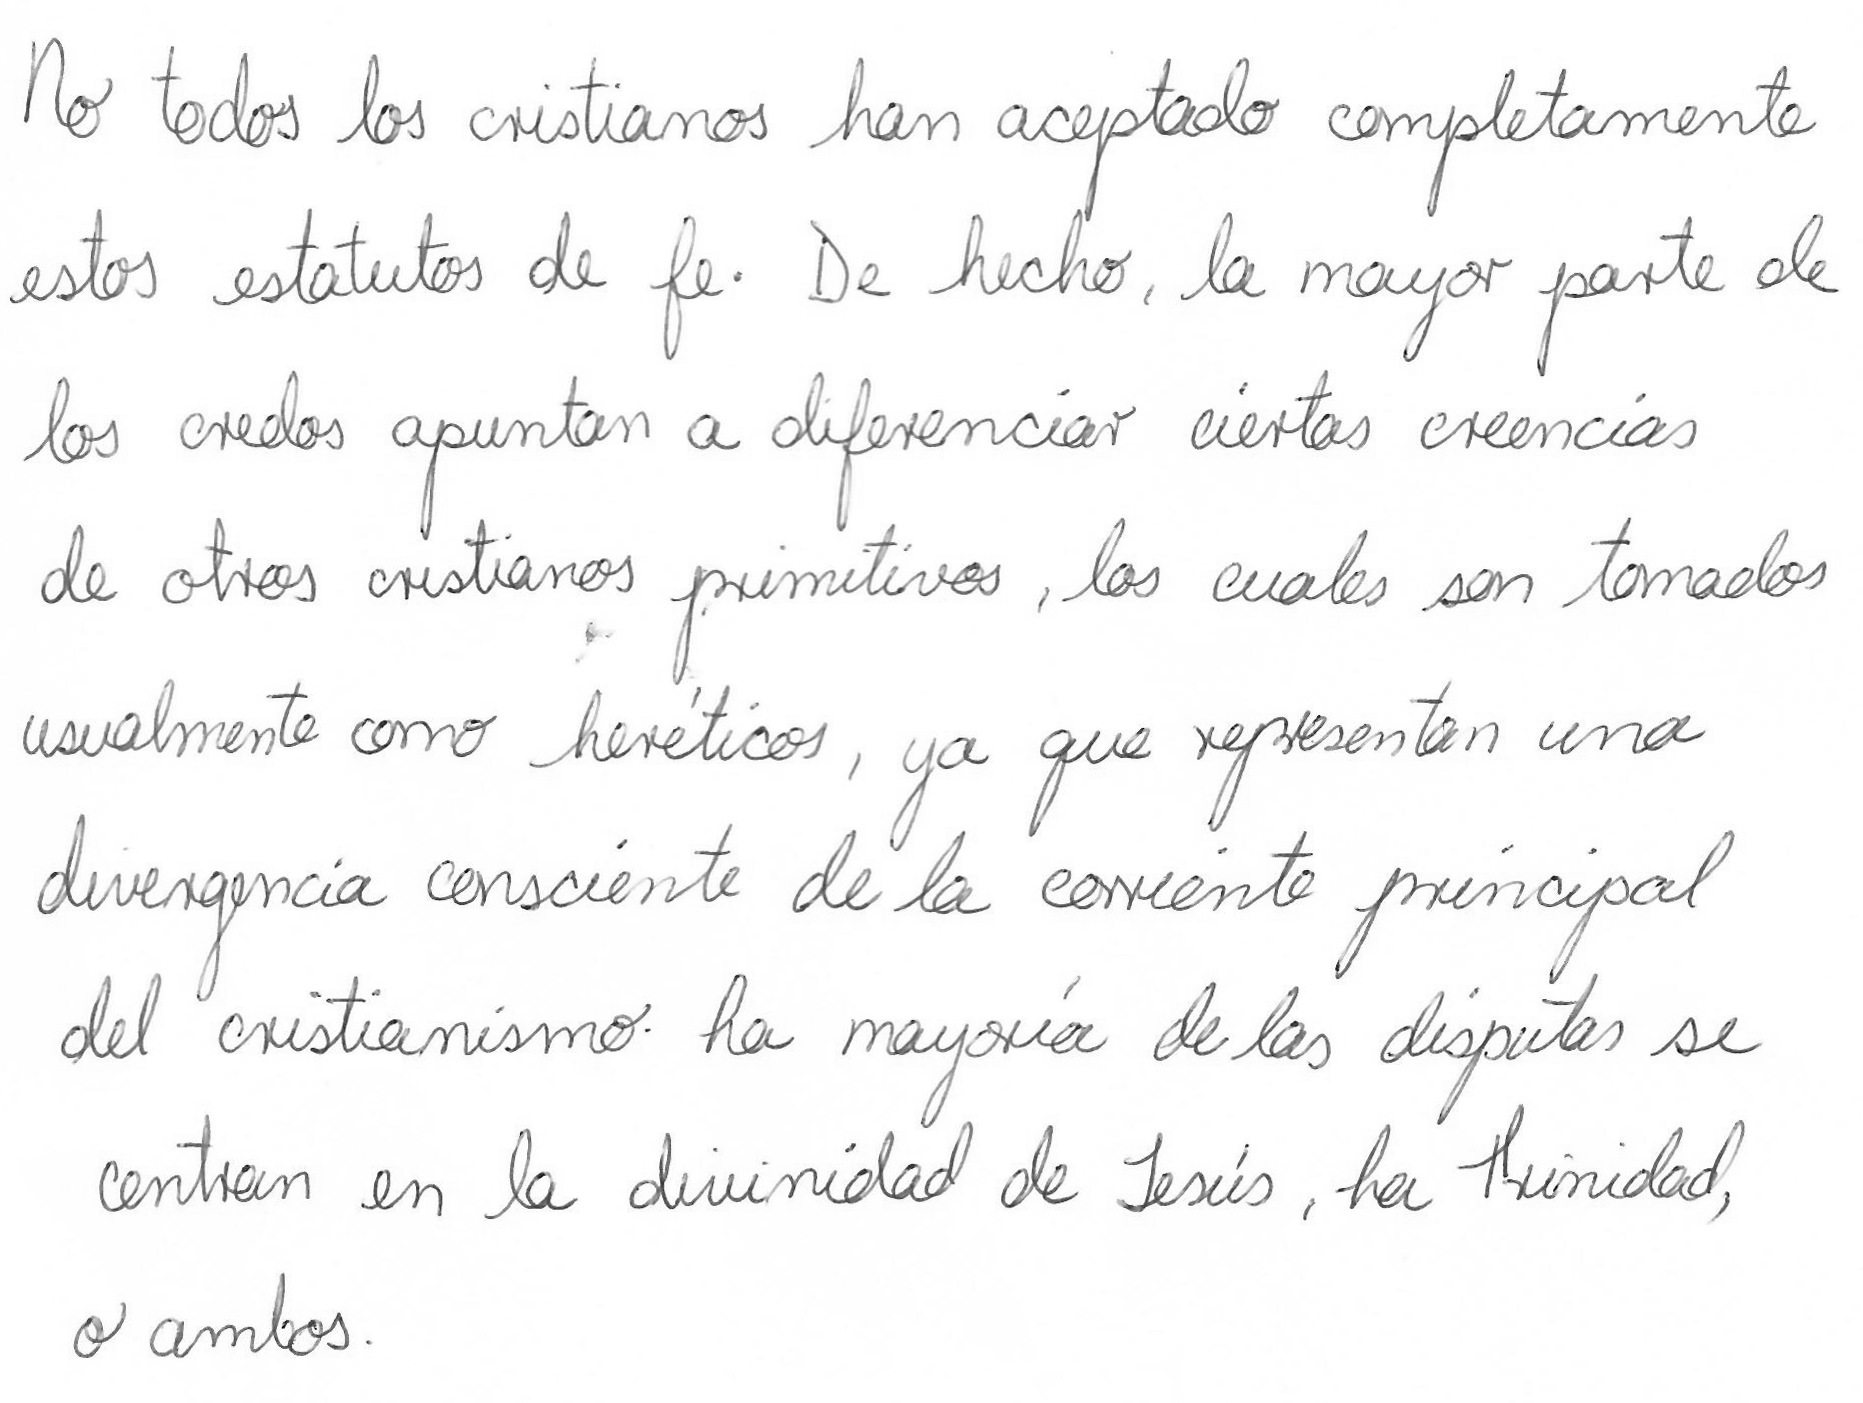 No todos los cristianos han aceptado completamente
estos estatutos de fe. De hecho, la mayor parte de
los credos apuntan a diferenciar ciertas creencias
de otros cristianos primitivos, los cuales son tomados
usualmente como heréticos, ya que representan una
divergencia consciente de la corriente principal
del cristianismo. La mayoría de las disputas se
centran en la divinidad de Jesús, La Trinidad,
o ambos.